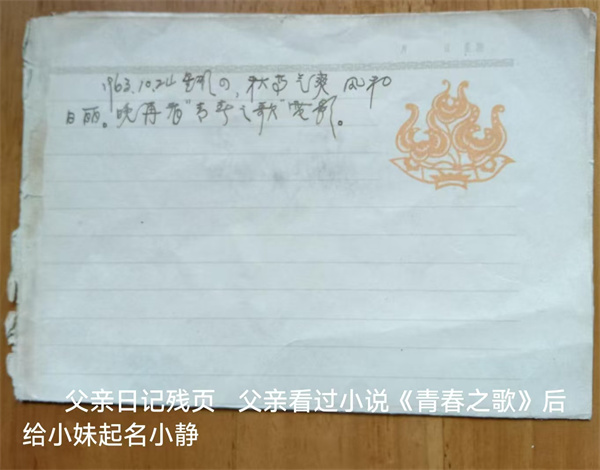 1963.10.24 星期四,秋高气爽 风和
日丽。晚再看"青春之歌"电影。
父亲日记残页 父亲看过小说《青春之歌》后
给小妹起名小静